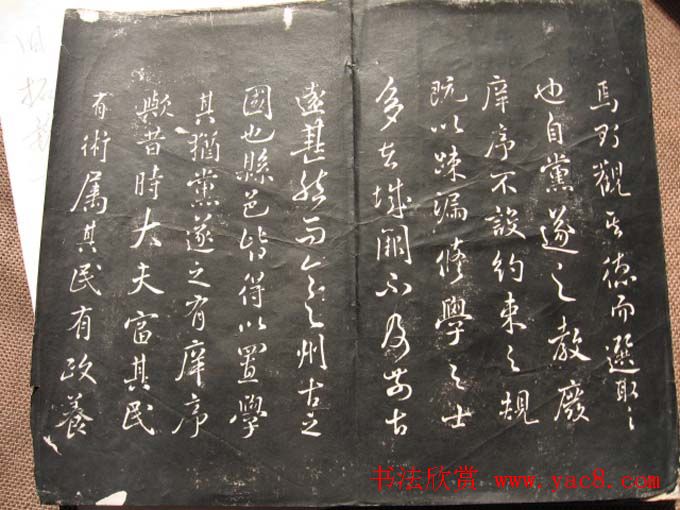 焉以觀其德而選取之
也自黨遂之教廢
庠序不設約束之規
既以踈漏修學之士
多在城闕不及爲古
遠甚然而今之州古之
國也縣邑皆得以置學
其猶黨遂之有庠序
歟昔時大夫富其民
有術屬其民有政養
书法欣赏 www.yac8.com